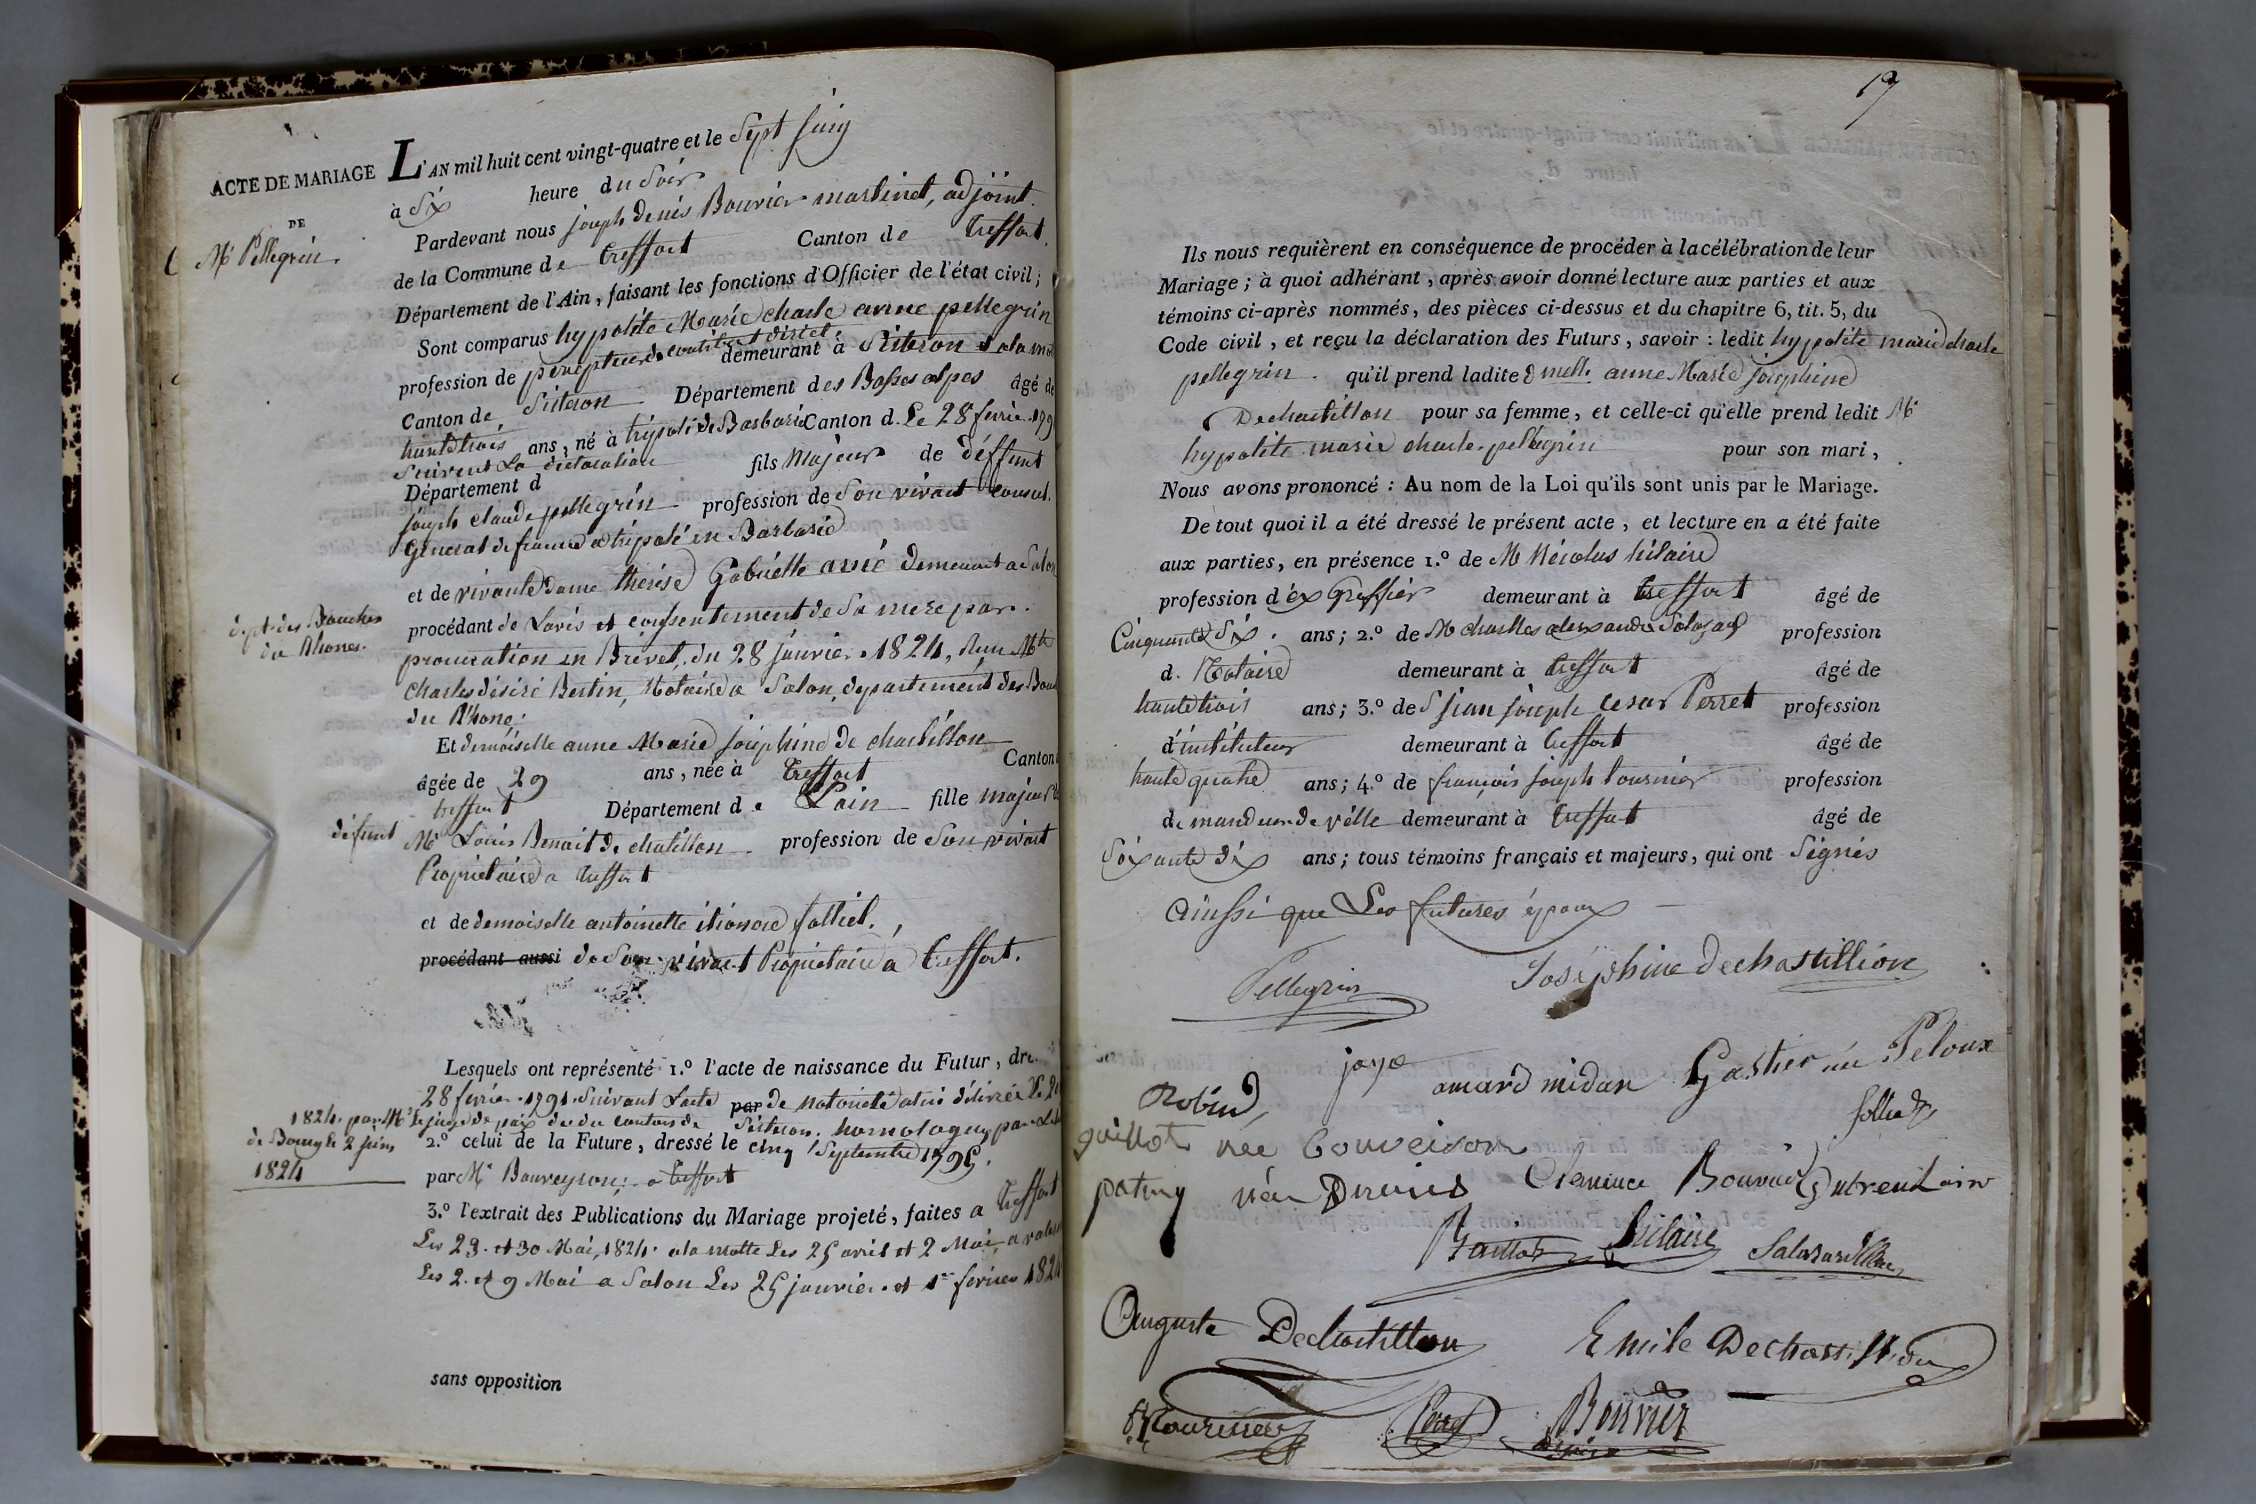 ACTE DE MARIAGE
DE
Mr Pellegrin.
L'AN mil huit cent vingt-quatre et le Sept juin
à Six heure du Soir
Pardevant nous joseph denis Bouvier martinet, adjoint.
de la Commune de treffort Canton de treffort.
Département de l'Ain, faisant les fonctions d'Officier de l'état civil;
Sont comparus hypolite Marie charle anne pellegrin
profession de percepteur de contrib. direct. demeurant à Sisteron a la
Canton de Sisteron Département des Basses alpes âgé de
trente trois ans, né à tripoli de Barbarie Canton d. Le 28 fevrie. 179
Suivent la déclaration fils Majeur de déffunt
Département d
joseph claude pellegrin profession de Son vivant consul.
General de france a tripoli en Barbarie
et de vivante Dame thérése Gabrielle demeurant a Salon
dept. des Bouches
du Rhone.
procédant de Lavis et consentement de Sa mere par.
procuration en Brevet, du 28 janvier 1824, Rum Mtre
charles désiré Bertin, Notaire a Salon, departement des Bouc
du Rhone.
Et demoiselle anne Marie joséphine de chastillon
âgée de 29 ans, née à treffort Canton
treffort Département de Lain fille majeur
défunt Mr Louis Benoit de chatillon. profession de Son vivant
Propriétaire a treffort
et de demoiselle antoinette folliet.
procédant aussi de Son vivant Propriétaire a treffort.
Lesquels ont représenté 1.º l'acte de naissance du Futur, dre
28 fevrier 1791. Suivant Lacte par de notorieté délivrée le
1824. par Mr le juge de paix du canton de Sisteron. homologuee par
de Bourg le 2 juin
1824
2.º celui de la Future, dressé le cinq Septembre 1795.
par Mr Bouveyron. a treffort
3.º l'extrait des Publications du Mariage projeté, faites a treffort
Les 23. et 30 Mai, 1824. a la motte Les 25 avril et 2 Mai,
Les 2. et 9 Mai a Salon Les 25 janvier et 1er fevrier 1824
sans opposition
19
Ils nous requièrent en conséquence de procéder à la célébration de leur
Mariage; à quoi adhérant, après avoir donné lecture aux parties et aux
témoins ci-après nommés, des pièces ci-dessus et du chapitre 6, tit. 5, du
Code civil, et reçu la déclaration des Futurs, savoir: ledit hypolite marie charle
pellegrin. qu'il prend ladite dmelle anne Marie joséphine
Dechastillon pour sa femme, et celle-ci qu'elle prend ledit Mr
hypolite marie charle pellegrin pour son mari,
Nous avons prononcé: Au nom de la Loi qu'ils sont unis par le Mariage.
De tout quoi il a été dressé le présent acte, et lecture en a été faite
aux parties, en présence 1.º de M Nicolas hilaire
profession d'ex Greffier demeurant à treffort âgé de
Cinquante Six. ans; 2.º de M charles alexandre Salazard profession
d. Notaire demeurant à treffort âgé de
trente trois ans; 3.º de S jean joseph cesar Perret profession
d'instituteur demeurant à treffort âgé de
trente quatre ans; 4.º de françois joseph tournier profession
de mandeur de ville demeurant à treffort âgé de
Soixante dix ans; tous témoins français et majeurs, qui ont Signés
ainssi que Les futures époux
Pellegrin Joséphine dechastillion
jaye amard midan Gastier née Peloux
Robin folliet
guillot nee Bouveison
née Clemence Bouvier
hilaire Salazard
Auguste Dechastillon Emile Dechastillon
tournier Perret Bouvier
adjoint